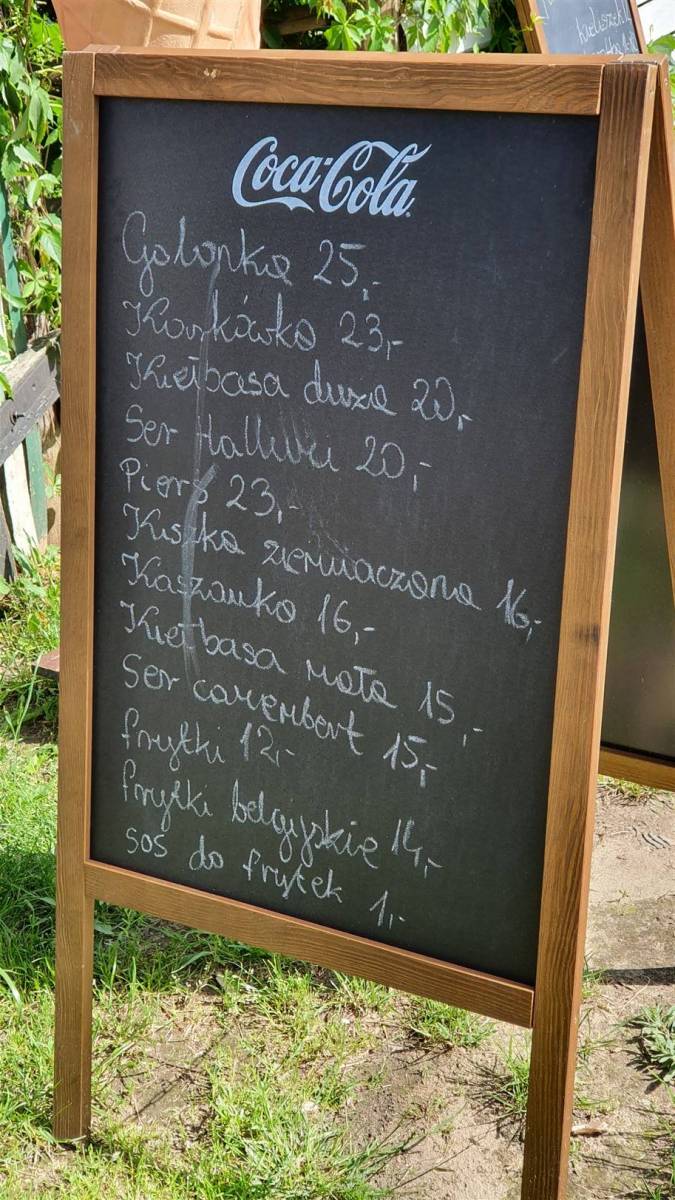 Coca-Cola
Golonka 25,-
Karkówka 23,-
Kiełbasa duża 20,-
Ser Hallumi 20,-
Pierś 23,-
Kiszka ziemniaczana 16,-
Kaszanka 16,-
Kiełbasa mała 15,-
Ser camembert 15,-
frytki 12,-
frytki belgijskie 14,-
sos do frytek 1,-